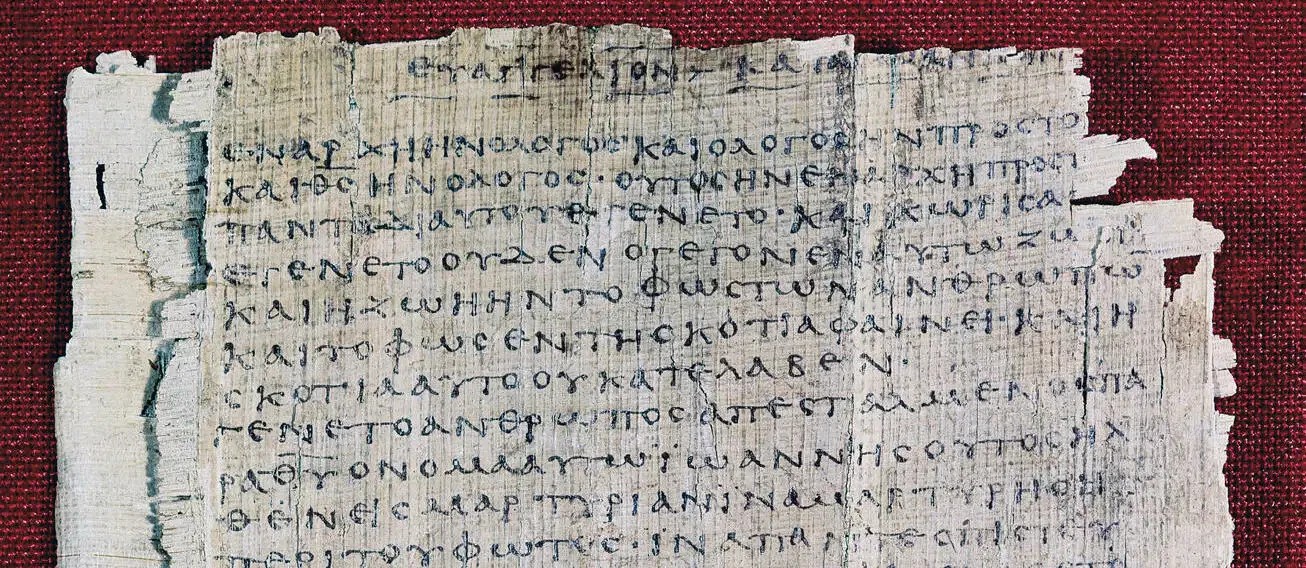 ΕΥΑΓΓΕΛΙΟΝ ΚΑΤΑ
ΕΝΑΡΧΗΗΝΟΛΟΓΟϹΚΑΙΟΛΟΓΟϹΗΝΠΡΟϹΤΟ
ΚΑΙΘ̅Ϲ̅ΗΝΟΛΟΓΟϹ·ΟΥΤΟϹΗΝΕΝΑΡΧΗΠΡΟϹΤ
ΠΑΝΤΑΔΙΑΥΤΟΥΕΓΕΝΕΤΟ·ΚΑΙΧΩΡΙϹΑ
ΕΓΕΝΕΤΟΟΥΔΕΝΟΓΕΓΟΝΕΝΕΝΑΥΤΩΖΩ
ΚΑΙΗΖΩΗΗΝΤΟΦΩϹΤΩΝΑΝΘΡΩΠΩ̅
ΚΑΙΤΟΦΩϹΕΝΤΗϹΚΟΤΙΑΦΑΙΝΕΙ·ΚΑΙΗ
ϹΚΟΤΙΑΑΥΤΟΟΥΚΑΤΕΛΑΒΕΝ·
ΓΕΝΕΤΟΑΝΘΡΩΠΟϹΑΠΕϹΤΑΛΜΕΝΟϹΠΑ
ΡΑΘ̅Υ̅ΟΝΟΜΑΑΥΤΩΪΩΑΝΝΗϹΟΥΤΟϹΗΛ
ΘΕΝΕΙϹΜΑΡΤΥΡΙΑΝΪΝΑΜΑΡΤΥΡΗϹΗ
ΠΕΡΙΤΟΥΦΩΤΟϹ·ΪΝΑΠΑΝΤΕϹΠΙϹΤΕΥ